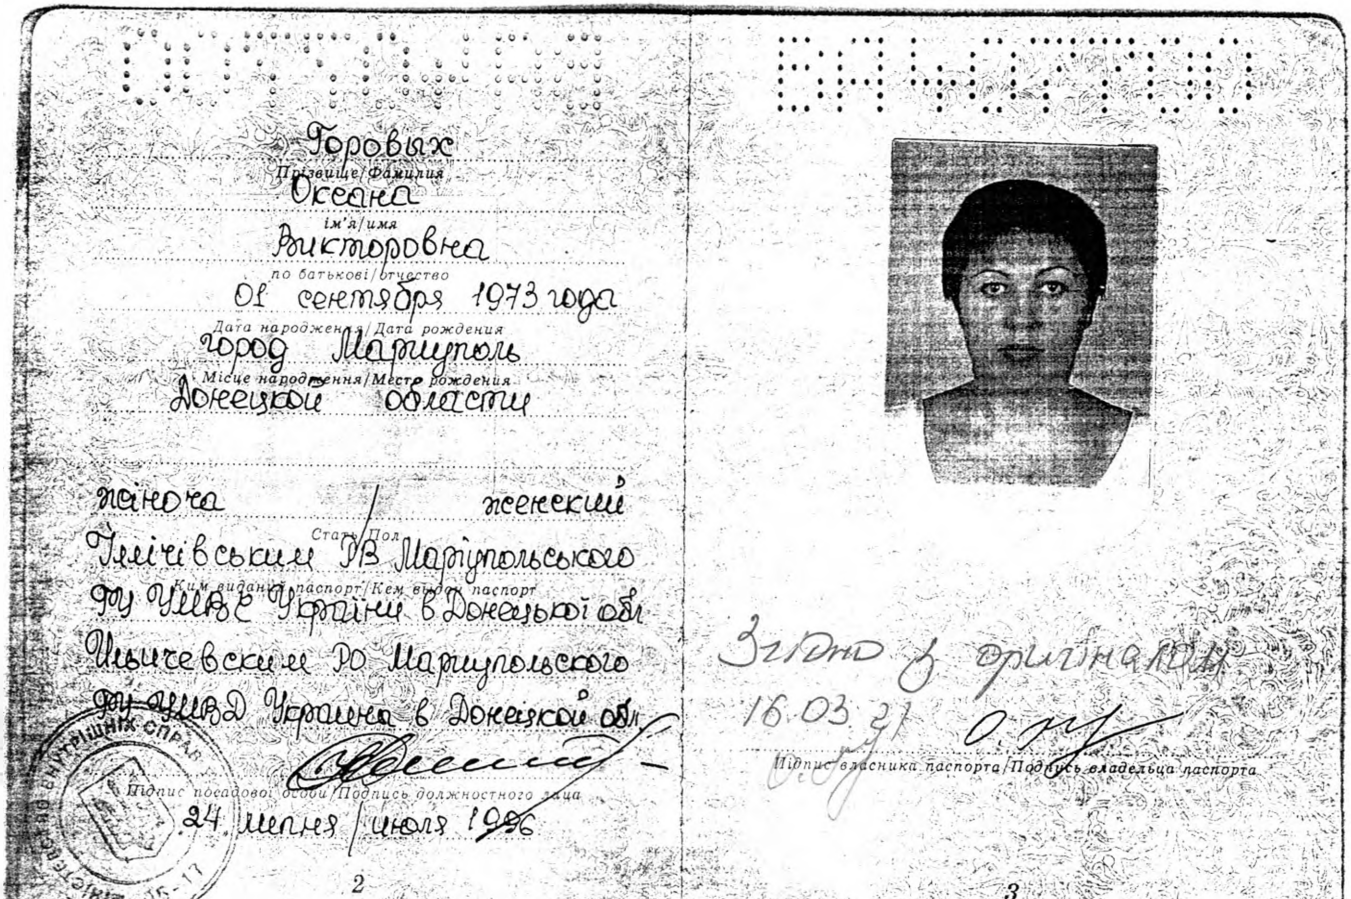 Горовых
Прізвище/Фамилия
Оксана
ім'я/имя
Викторовна
по батькові/отчество
01 сентября 1973 года
Дата народження/Дата рождения
город Мариуполь
Місце народження/Место рождения
Донецкой области
жіноча / женский
Стать/Пол
Іллічівським РВ Маріупольського
Ким виданий паспорт/Кем выдан паспорт
ГУ УМВС України в Донецької обл
Ильичевским РО Мариупольского
ГУ УМВД Украина в Донецкой обл
Підпис посадової особи/Подпись должностного лица
24 липня / июля 1996
МІНІСТЕРСТВО ВНУТРІШНІХ СПРАВ
2
Згідно з оригіналом
16.03.21
Підпис власника паспорта/Подпись владельца паспорта
3